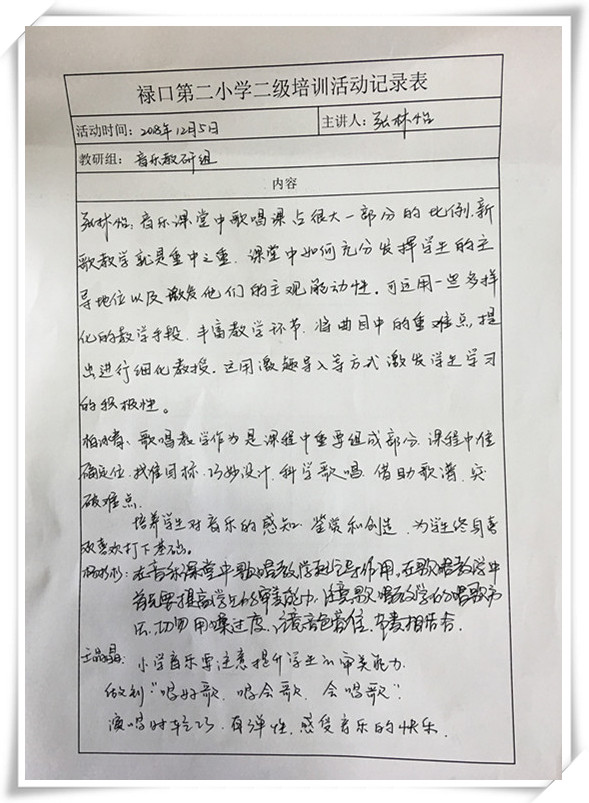 禄口第二小学二级培训活动记录表
活动时间：2018年12月5日 主讲人：张林怡
教研组：音乐教研组
内容
张林怡：音乐课堂中歌唱课占很大一部分的比例，新
歌教学就是重中之重，课堂中如何充分发挥学生的主
导地位以及激发他们的主观能动性，可运用一些多样
化的教学手段，丰富教学环节，将曲目中的重难点，提
出进行细化教授，运用激趣导入等方式激发学生学习
的积极性。
歌唱教学作为是课程中重要组成部分，课程中准
确定位，找准目标，巧妙设计，科学歌唱，借助歌谱，突
破难点。
培养学生对音乐的感知、鉴赏和创造，为学生终身喜
欢喜欢打下基础。
在音乐课堂中歌唱教学起作用，在歌唱教学中
首先要提高学生的审美能力，注意歌唱教学的唱歌方
法，切勿用嗓过度，注意音色，相结合。
王晶晶：小学音乐要注意提升学生的审美能力，
做到“唱好歌，唱会歌，会唱歌”，
演唱时轻巧，有弹性，感受音乐的快乐。